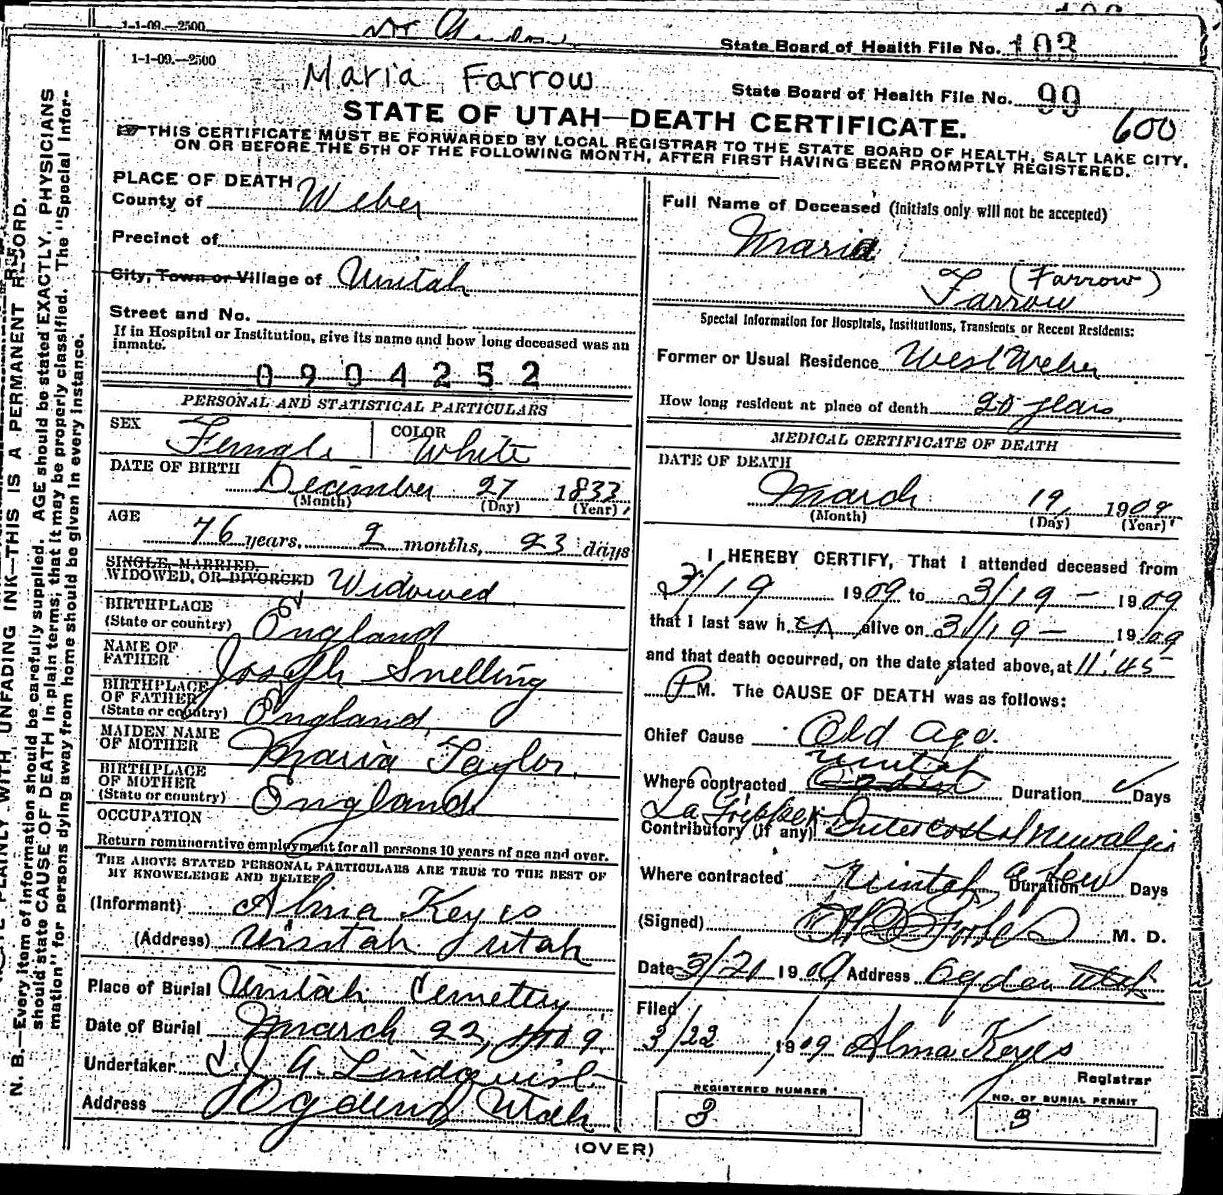 1-1-09.—2500
State Board of Health File No. 103
1-1-09.—2500
Maria Farrow
State Board of Health File No. 99
600
STATE OF UTAH—DEATH CERTIFICATE.
☞ THIS CERTIFICATE MUST BE FORWARDED BY LOCAL REGISTRAR TO THE STATE BOARD OF HEALTH, SALT LAKE CITY,
ON OR BEFORE THE 5TH OF THE FOLLOWING MONTH, AFTER FIRST HAVING BEEN PROMPTLY REGISTERED.
PLACE OF DEATH
County of Weber
Precinct of
City, Town or Village of Uintah
Street and No.
If in Hospital or Institution, give its name and how long deceased was an
inmate.
0904252
PERSONAL AND STATISTICAL PARTICULARS
SEX Female COLOR White
DATE OF BIRTH
December 27 1833
(Month) (Day) (Year)
AGE
76 years, 2 months, 23 days
SINGLE, MARRIED,
WIDOWED, OR DIVORCED Widowed
BIRTHPLACE
(State or country) England
NAME OF
FATHER Joseph Snelling
BIRTHPLACE
OF FATHER
(State or country) England
MAIDEN NAME
OF MOTHER Maria Taylor
BIRTHPLACE
OF MOTHER
(State or country) England
OCCUPATION
Return remunerative employment for all persons 10 years of age and over.
THE ABOVE STATED PERSONAL PARTICULARS ARE TRUE TO THE BEST OF
MY KNOWLEDGE AND BELIEF
(Informant) Alma Keyes
(Address) Uintah Utah
Place of Burial Uintah Cemetery
Date of Burial March 22, 1909
Undertaker J. A. Lindquist
Address Ogden Utah
Full Name of Deceased (Initials only will not be accepted)
Maria
(Farrow)
Farrow
Special Information for Hospitals, Institutions, Transients or Recent Residents:
Former or Usual Residence West Weber
How long resident at place of death 20 years
MEDICAL CERTIFICATE OF DEATH
DATE OF DEATH
March 19, 1909
(Month) (Day) (Year)
I HEREBY CERTIFY, That I attended deceased from
3/19 1909 to 3/19 – 1909
that I last saw h er alive on 3/19 – 1909
and that death occurred, on the date stated above, at 11:45
P M. The CAUSE OF DEATH was as follows:
Chief Cause Old age.
Uintah
Where contracted Ogden Duration Days
La Grippe
Contributory (if any) Intercostal Neuralgia
Where contracted Uintah Duration a few Days
(Signed) M. D.
Date 3/21 1909 Address Ogden Utah
Filed
3/22 1909 Alma Keyes
Registrar
REGISTERED NUMBER
3
NO. OF BURIAL PERMIT
3
(OVER)
N. B.—Every item of information should be carefully supplied. AGE should be stated EXACTLY. PHYSICIANS
should state CAUSE OF DEATH in plain terms, that it may be properly classified. The "Special Infor-
mation" for persons dying away from home should be given in every instance.
PLAINLY WITH UNFADING INK—THIS IS A PERMANENT RECORD.